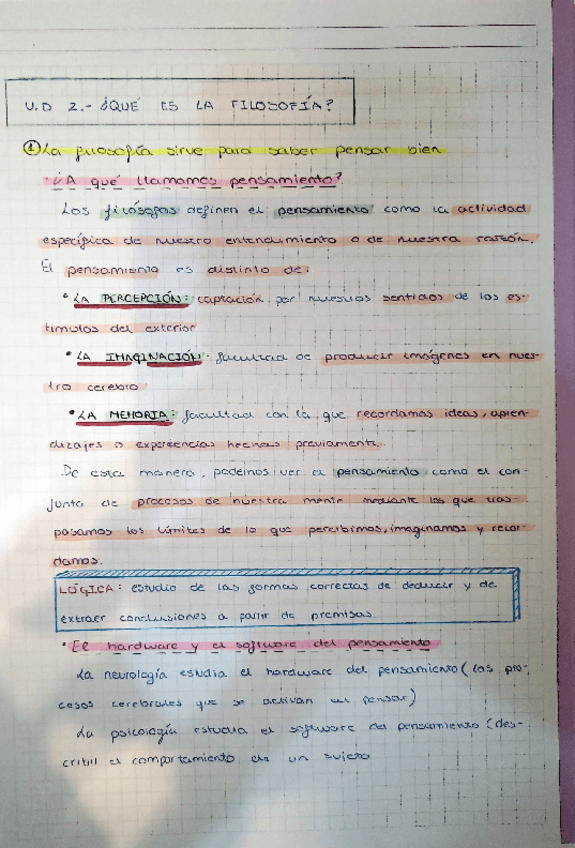 U.D 2.- ¿QUÉ ES LA FILOSOFÍA?
① La filosofía sirve para saber pensar bien
· ¿A qué llamamos pensamiento?
Los filósofos definen el pensamiento como la actividad
específica de nuestro entendimiento o de nuestra razón.
El pensamiento es distinto de:
• LA PERCEPCIÓN: captación por nuestros sentidos de los es-
tímulos del exterior
• LA IMAGINACIÓN: facultad de producir imágenes en nues-
tro cerebro
• LA MEMORIA: facultad con la que recordamos ideas, apren-
dizajes o experiencias hechas previamente.
De esta manera, podemos ver el pensamiento como el con-
junto de procesos de nuestra mente mediante los que tras-
pasamos los límites de lo que percibimos, imaginamos y recor-
damos.
LÓGICA: estudio de las formas correctas de deducir y de
extraer conclusiones a partir de premisas
• El hardware y el software del pensamiento
La neurología estudia el hardware del pensamiento (los pro-
cesos cerebrales que se activan al pensar)
La psicología estudia el software del pensamiento (des-
cribir el comportamiento de un sujeto